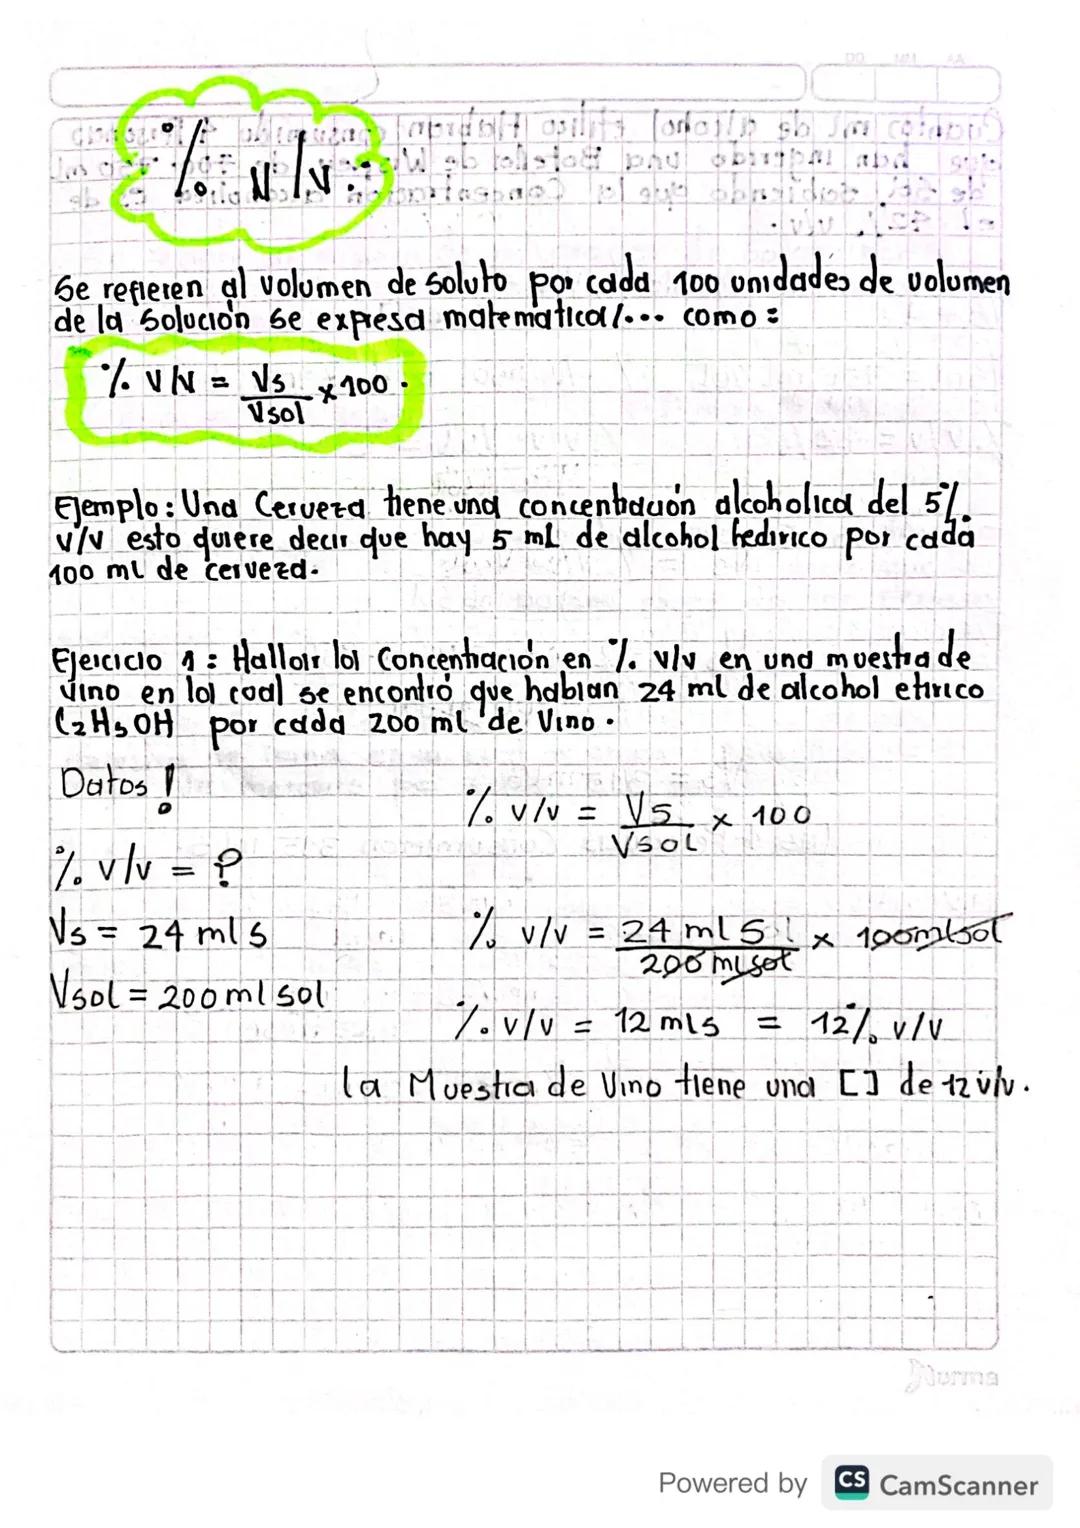 % v/v.
Se refieren al volumen de soluto por cada 100 unidades de volumen
de la solución se expresa matematica/... como:
% v/v = Vs x 100.
Vsol
Ejemplo: Una Cerveza tiene una concentración alcoholica del 5%
v/v esto quiere decir que hay 5 ml de alcohol hedirico por cada
100 ml de cerveza.
Ejercicio 1: Hallar la Concentración en % v/v en una muestra de
vino en la cual se encontró que habían 24 ml de alcohol etirico
C2H5OH por cada 200 ml de Vino.
Datos!
% v/v = ?
Vs = 24 ml s
Vsol = 200 ml sol
% v/v = Vs x 100
Vsol
% v/v = 24 ml s x 100ml sol
200 ml sol
% v/v = 12 mls = 12% v/v
la Muestra de Vino tiene una [] de 12 v/v.
Norma
Powered by CS CamScanner